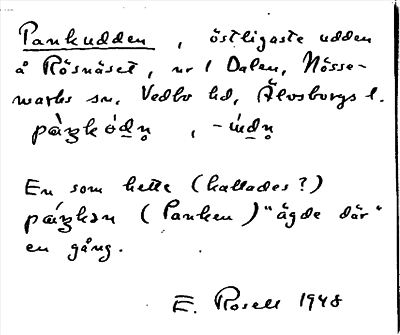 Pankudden, östligaste udden
å Rösnäset, nr 1 Dalen, Nösse-
marks sn, Vedbo hd, Älvsborgs l.
påŋkódn̥, -údn̥
En som hette (kallades?)
páŋkən (Panken) "ägde där"
en gång.
E. Rosell 1948